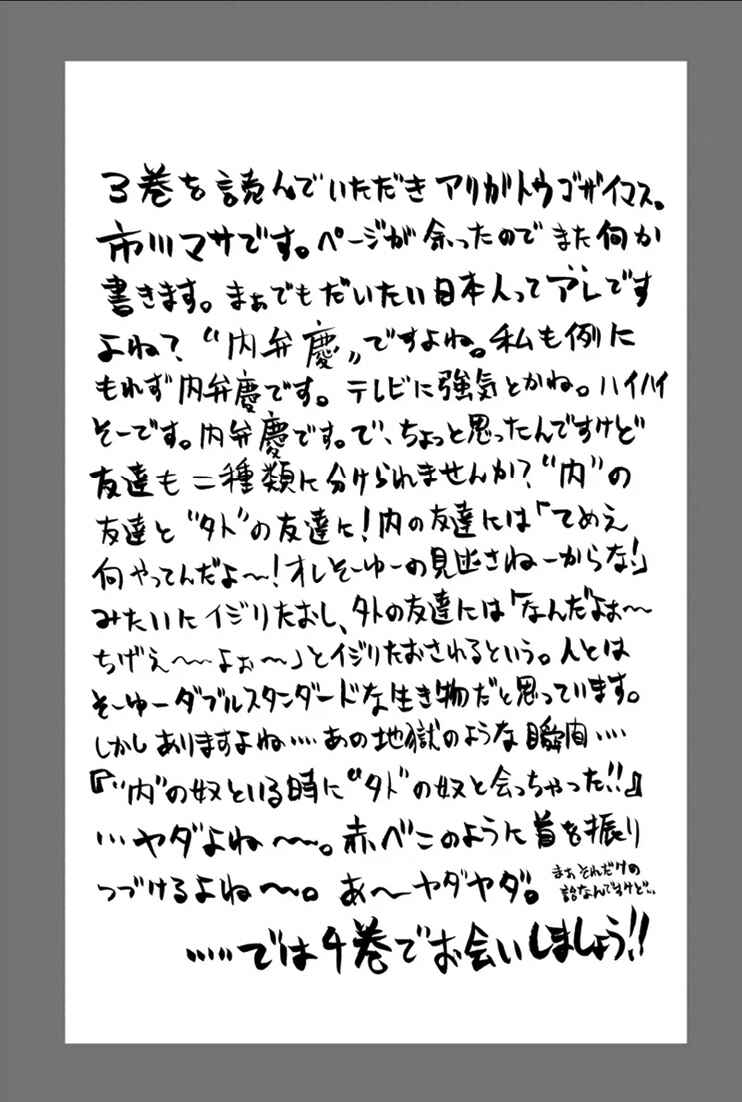 3巻を読んでいただきアリガトウゴザイマス。
市川マサです。ページが余ったのでまた何か
書きます。まぁでもだいたい日本人ってアレです
よね？“内弁慶”ですよね。私も例に
もれず内弁慶です。テレビに強気とかね。ハイハイ
そーです。内弁慶です。で、ちょっと思ったんですけど
友達も二種類に分けられませんか？“内”の
友達と“外”の友達に！内の友達には「てめえ
何やってんだよ～！オレそーゆーの見逃さねーからな！」
みたいにイジりたおし、外の友達には「なんだよぉ～
ちげぇ～～よぉ～」とイジりたおされるという。人とは
そーゆーダブルスタンダードな生き物だと思っています。
しかしありますよね‥‥あの地獄のような瞬間‥‥
『“内”の奴といる時に“外”の奴と会っちゃった!!』
…ヤダよね～～。赤べこのように首を振り
つづけるよね～～。あ～ヤダヤダ。
まぁそれだけの
話なんですけど‥
‥‥‥では4巻でお会いしましょう!!